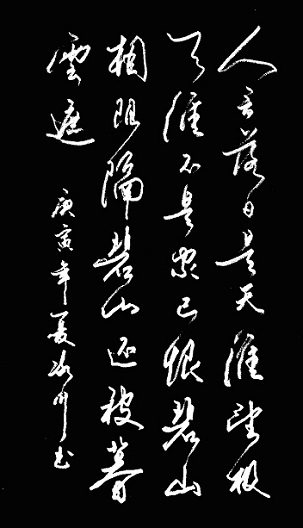 人言落日是天涯望极
天涯不見家已恨碧山
相阻隔碧山还被暮
雲遮
庚寅年夏川书